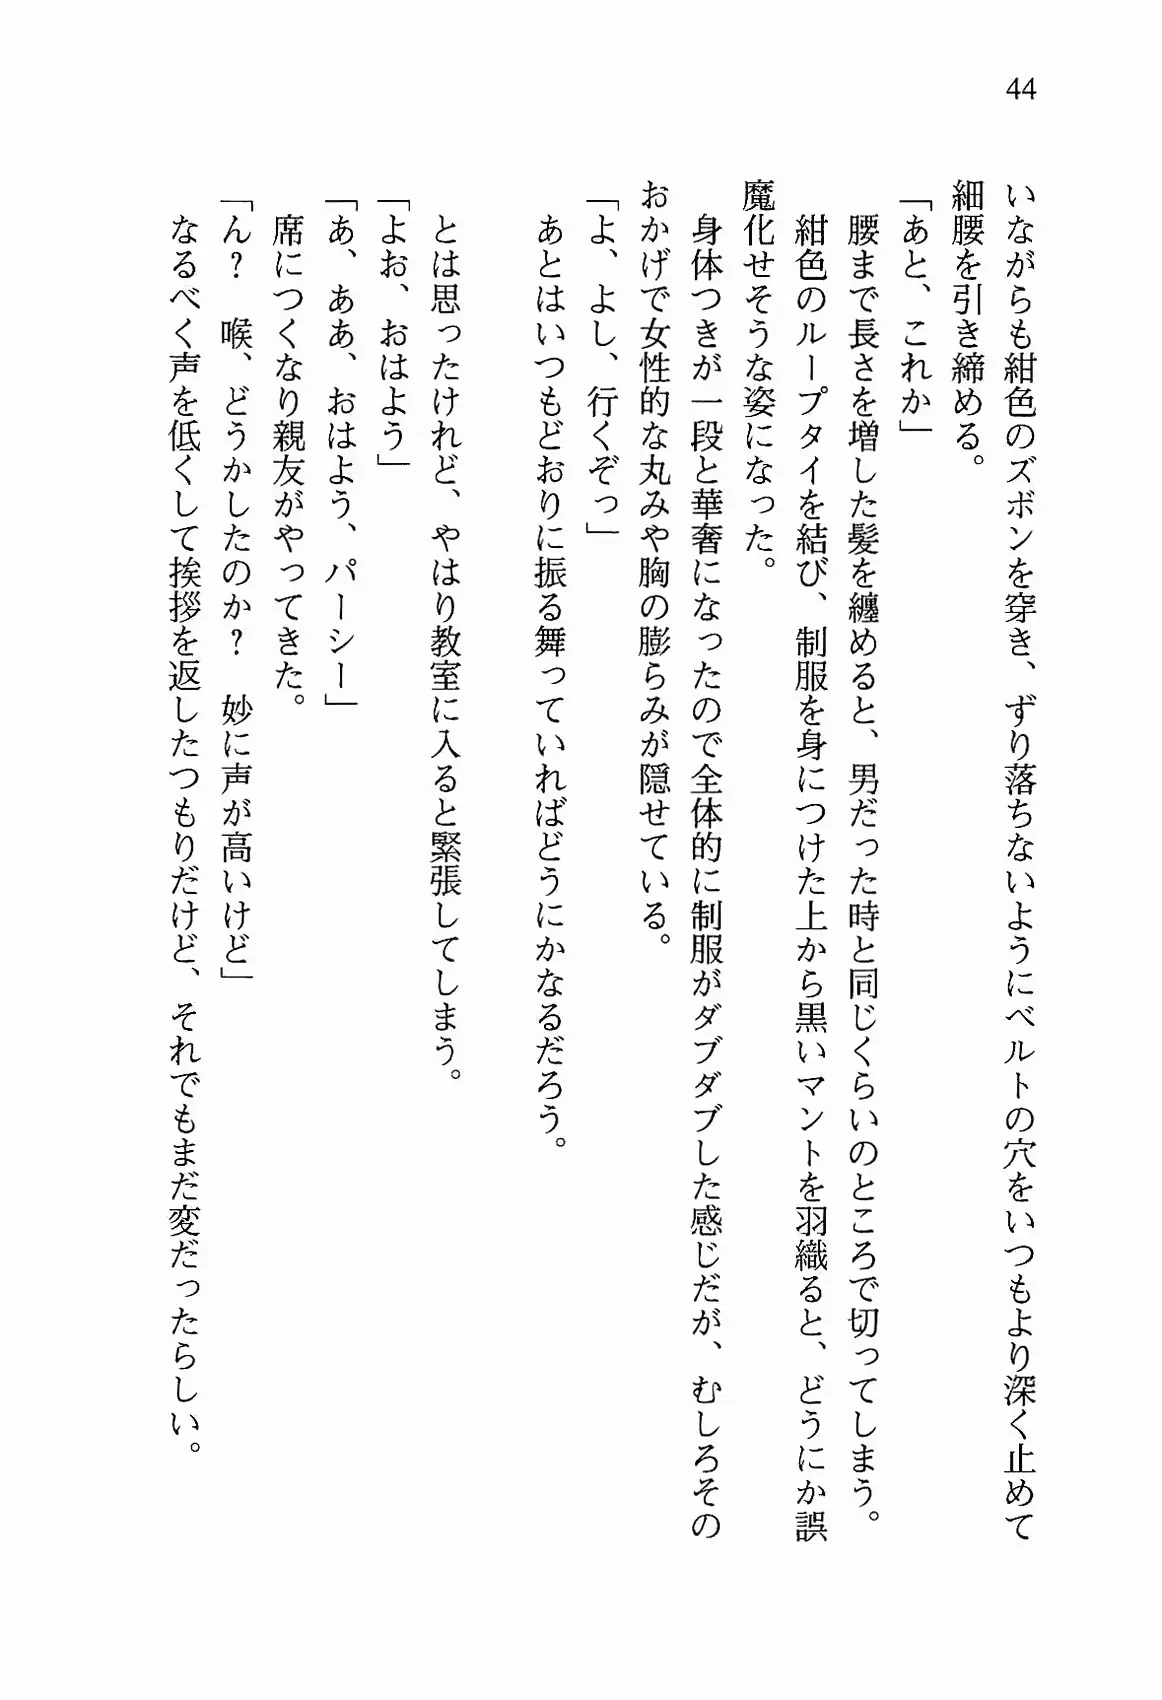 44
いながらも紺色のズボンを穿き、ずり落ちないようにベルトの穴をいつもより深く止めて
細腰を引き締める。
「あと、これか」
腰まで長さを増した髪を纏めると、男だった時と同じくらいのところで切ってしまう。
紺色のループタイを結び、制服を身につけた上から黒いマントを羽織ると、どうにか誤
魔化せそうな姿になった。
身体つきが一段と華奢になったので全体的に制服がダブダブした感じだが、むしろその
おかげで女性的な丸みや胸の膨らみが隠せている。
「よ、よし、行くぞっ」
あとはいつもどおりに振る舞っていればどうにかなるだろう。
とは思ったけれど、やはり教室に入ると緊張してしまう。
「よお、おはよう」
「あ、ああ、おはよう、パーシー」
席につくなり親友がやってきた。
「ん？　喉、どうかしたのか？　妙に声が高いけど」
なるべく声を低くして挨拶を返したつもりだけど、それでもまだ変だったらしい。